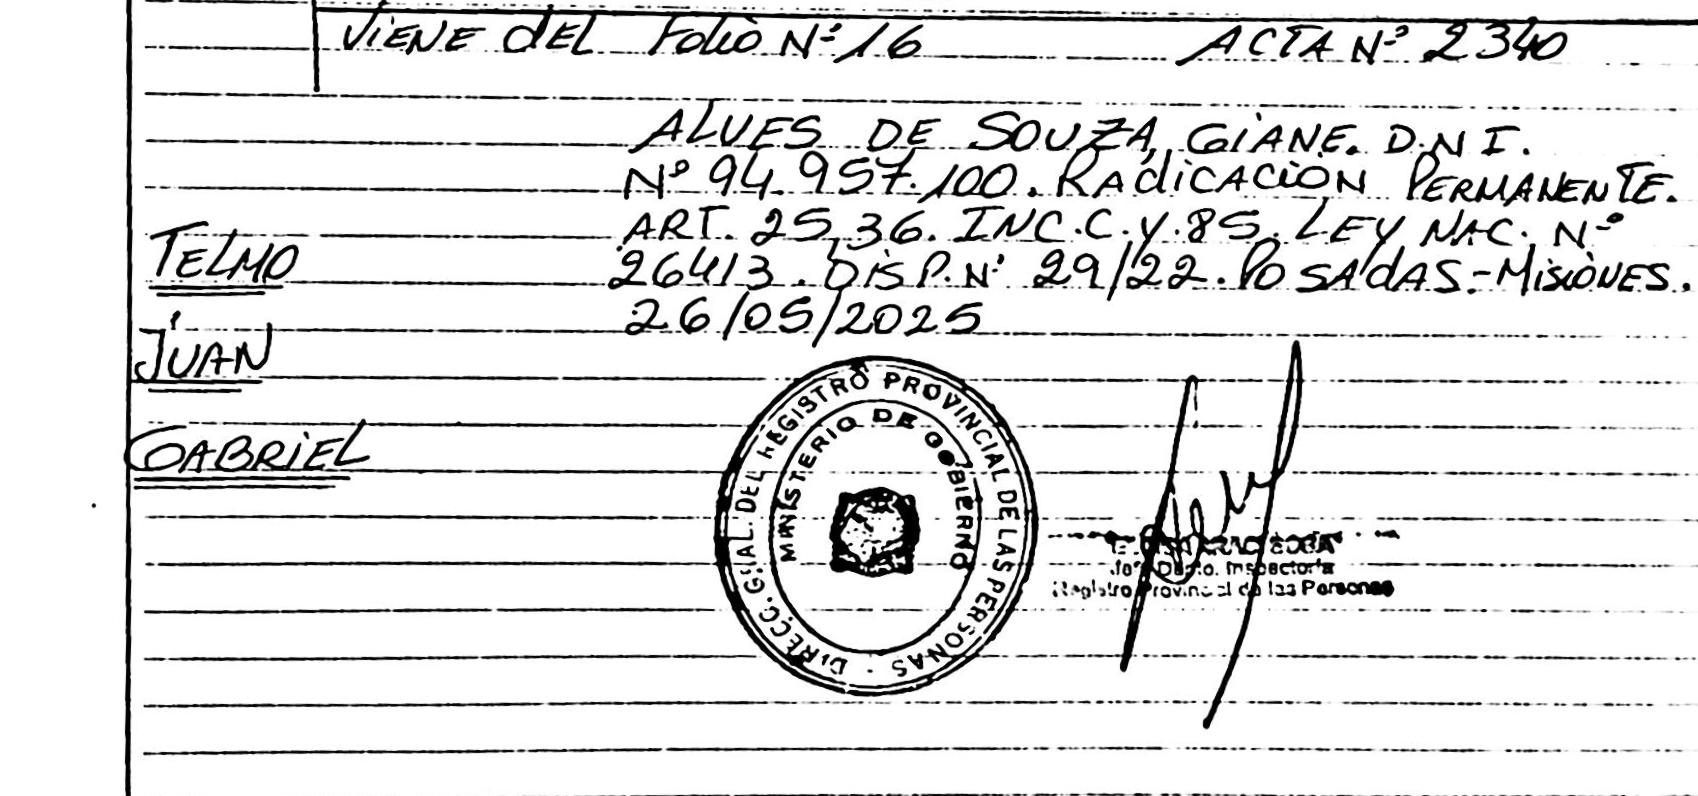 VIENE DEL Folio N° 16 ACTA N° 2340
ALVES DE SOUZA, GIANE. D.N I.
N° 94.957.100. RADICACIÓN PERMANENTE.
ART. 25,36. INC.C.Y.85. LEY NAC. N°
26413. DISP. N° 29/22. POSADAS.-MISIONES.
26/05/2025
TELMO
JUAN
GABRIEL
DIRECC. GRAL. DEL REGISTRO PROVINCIAL DE LAS PERSONAS
MINISTERIO DE GOBIERNO
Dpto. Inspectoría
Registro Provincial de las Personas